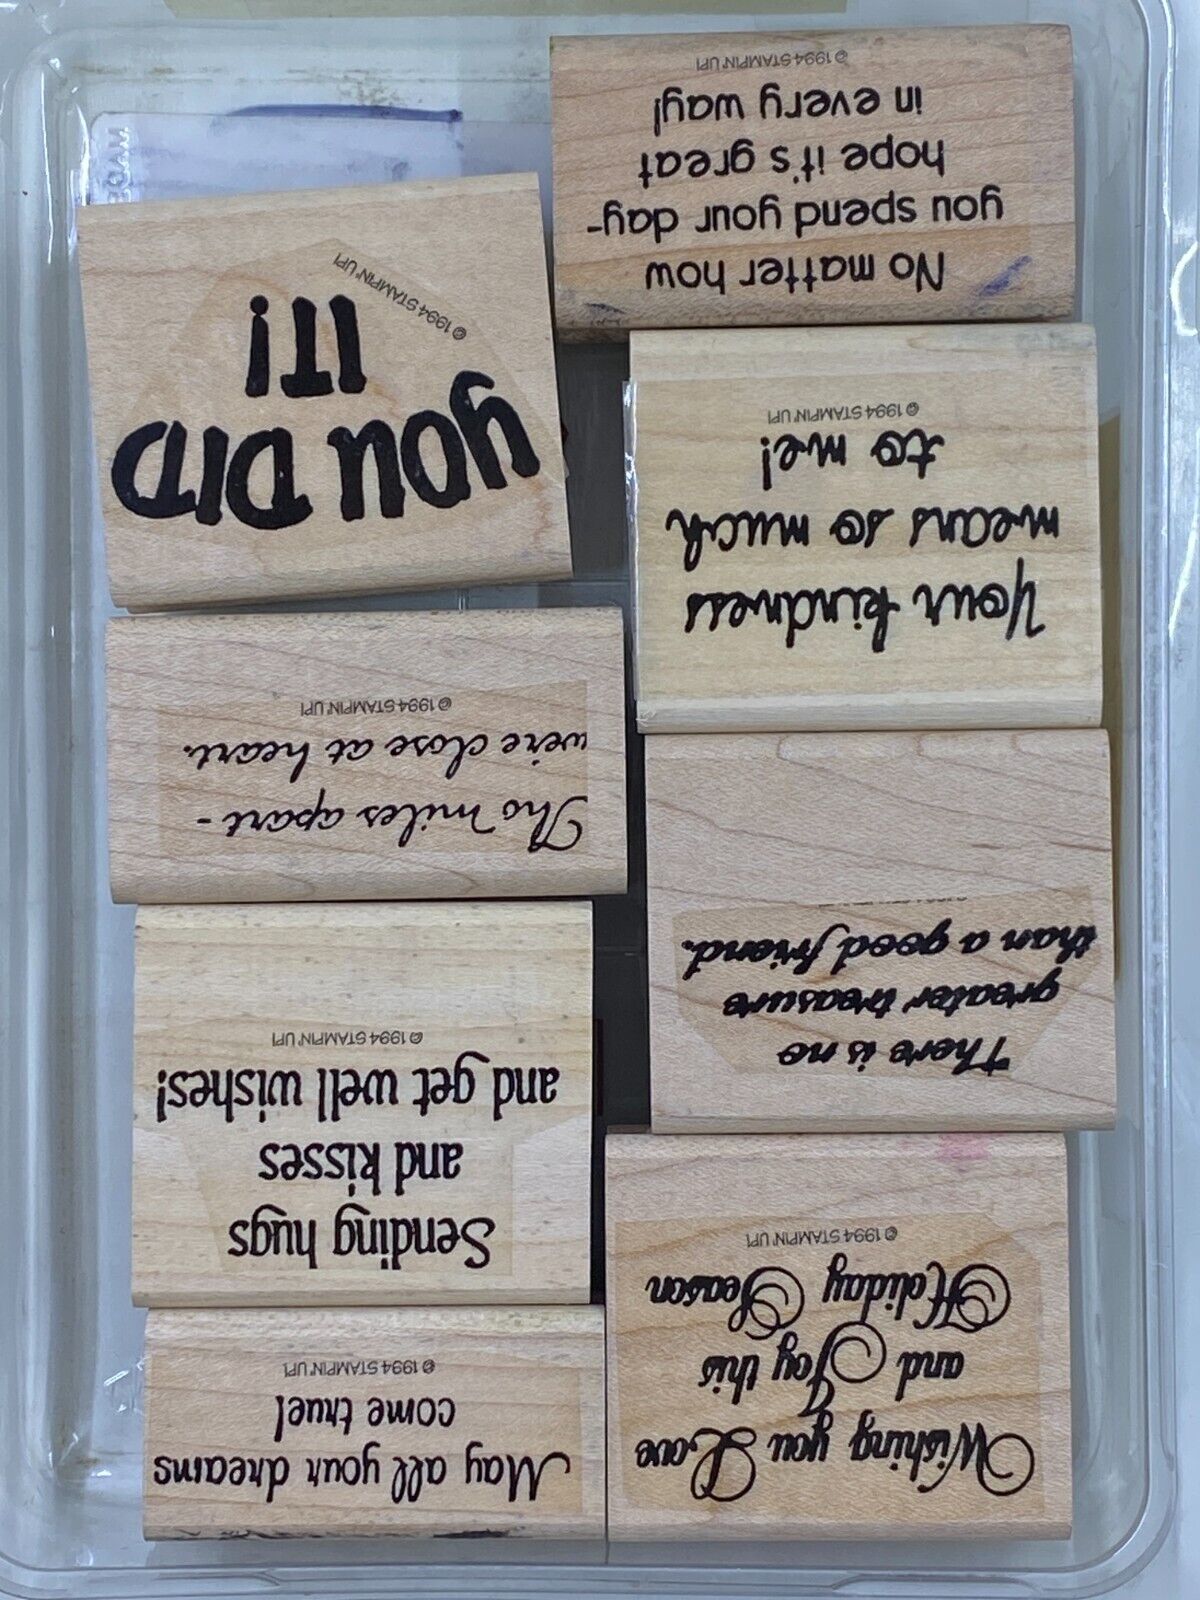 Wishing you Love
and Joy this
Holiday Season
© 1994 STAMPIN' UP!
May all your dreams
come true!
© 1994 STAMPIN' UP!
Sending hugs
and kisses
and get well wishes!
© 1994 STAMPIN' UP!
There is no
greater treasure
than a good friend.
Tho miles apart -
we're close at heart.
© 1994 STAMPIN' UP!
Your kindness
means so much
to me!
© 1994 STAMPIN' UP!
you DID
IT!
© 1994 STAMPIN' UP!
No matter how
you spend your day-
hope it's great
in every way!
© 1994 STAMPIN' UP!